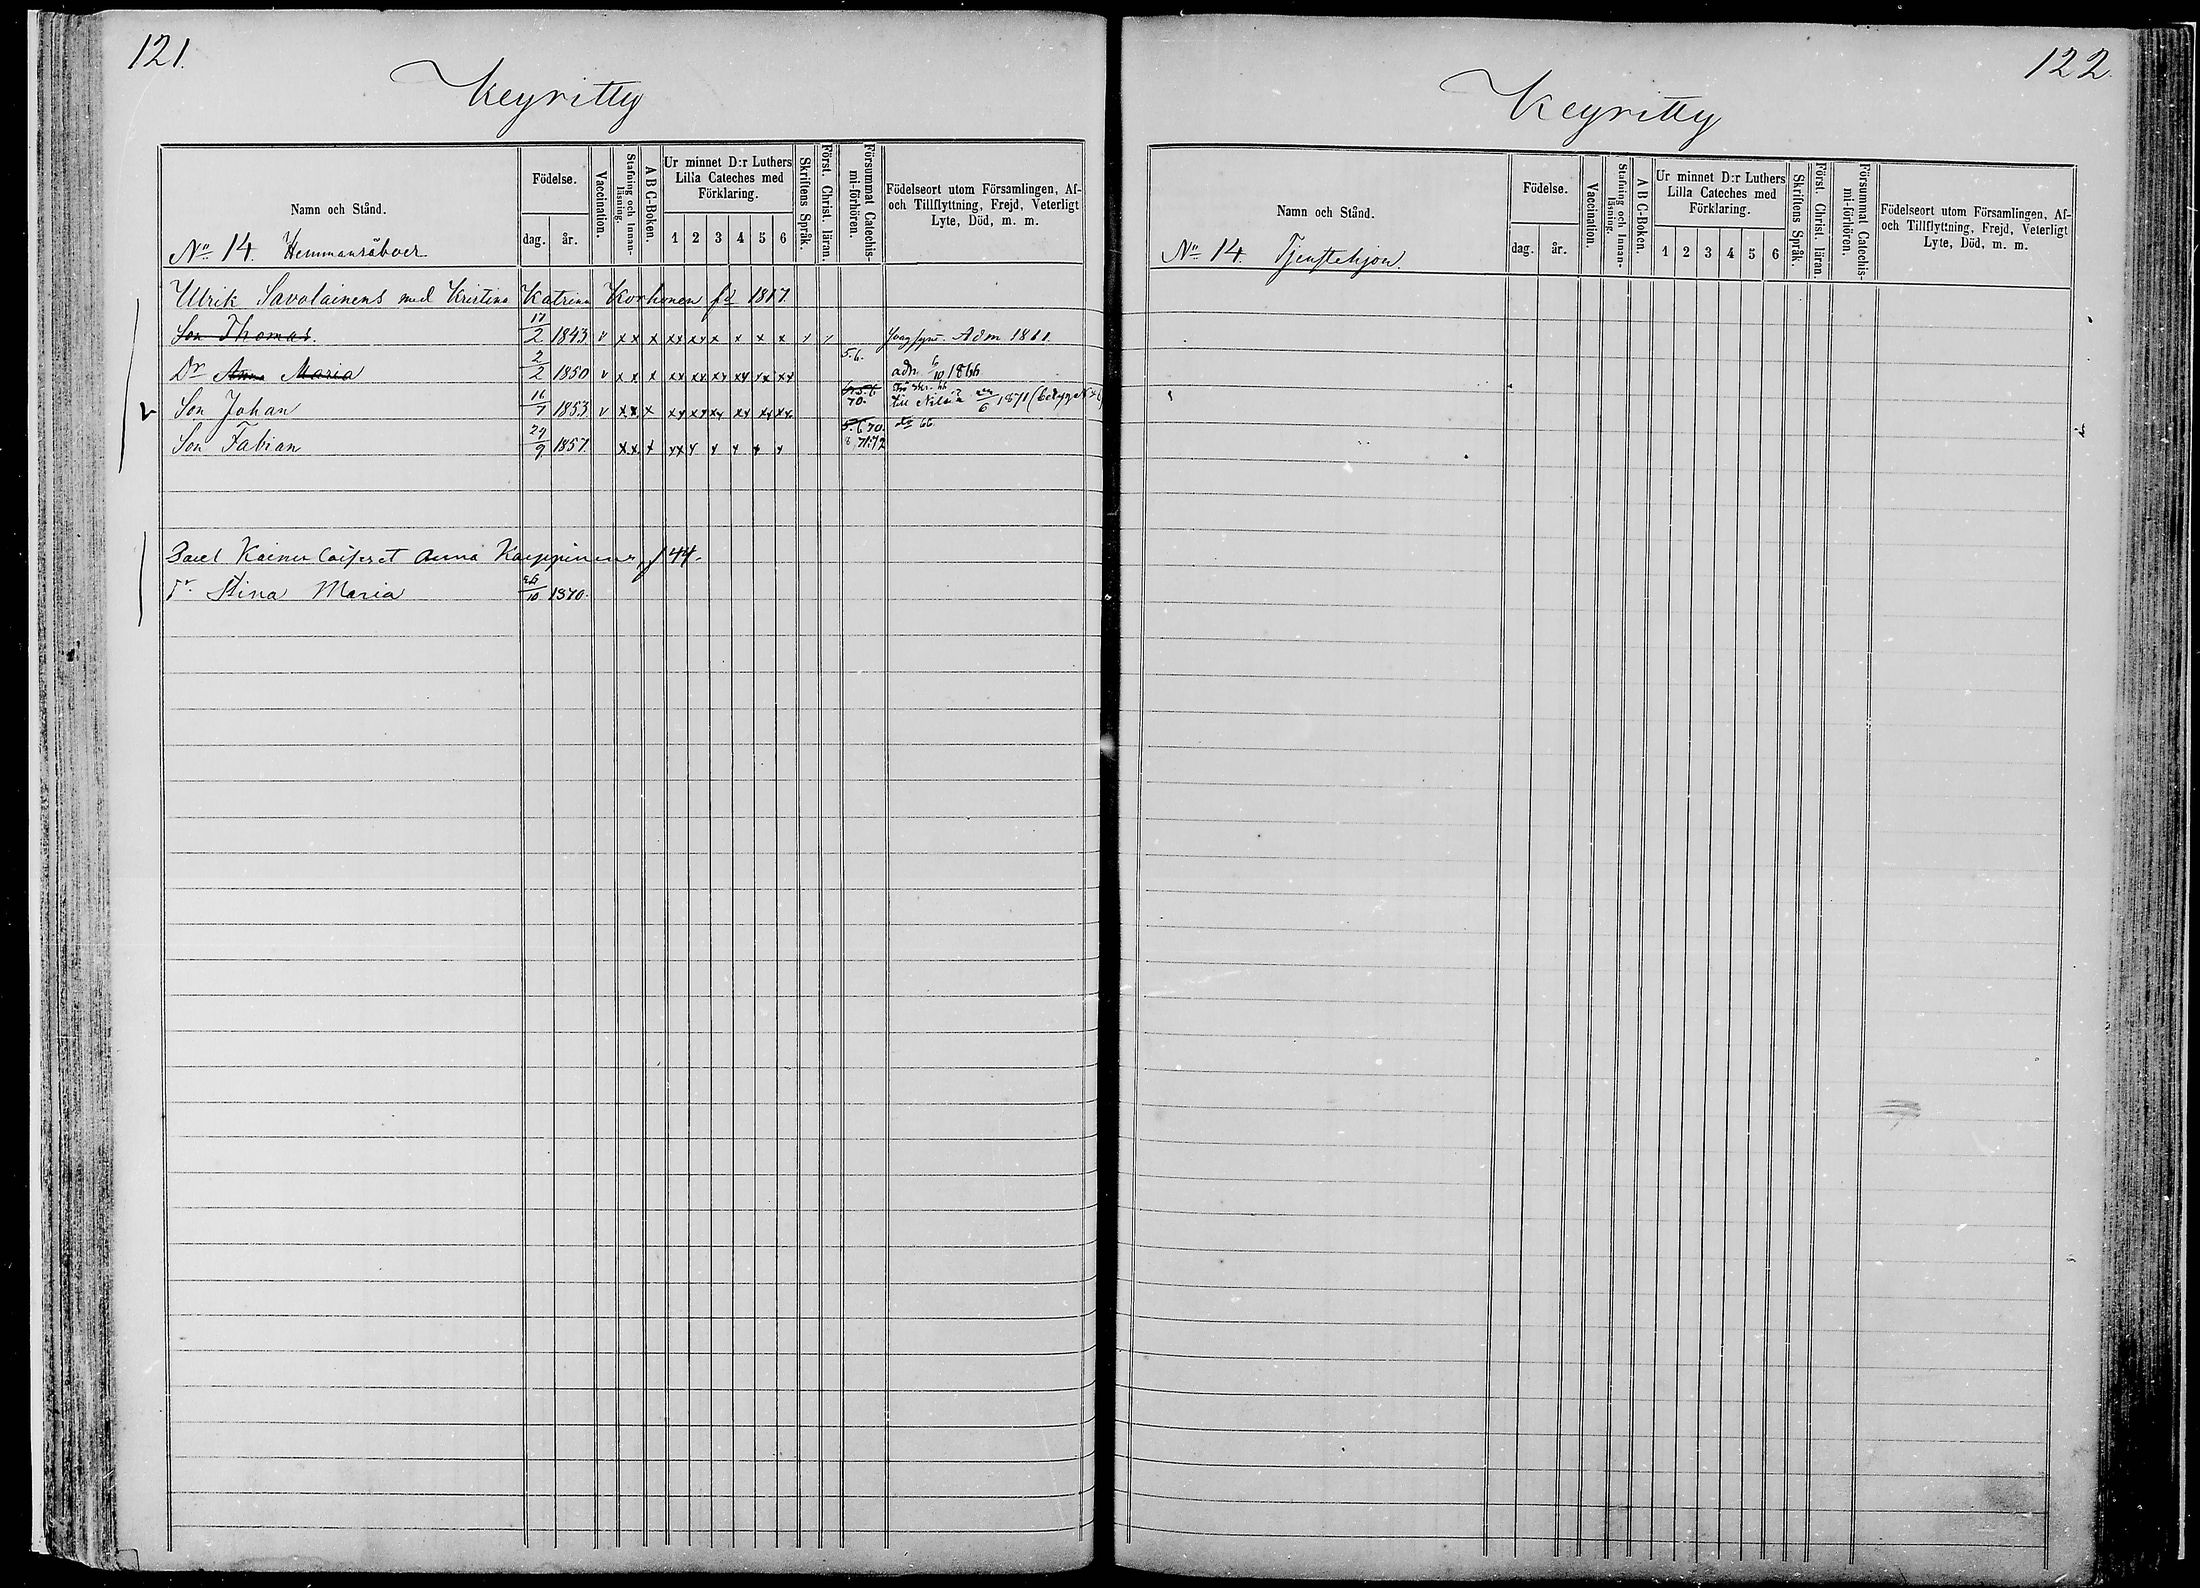 121.
Keyritty
Namn och Stånd.
No 14. Hemmansåboer
Födelse.
dag. år.
Vaccination.
Stafning och Innan-
läsning.
A B C-Boken.
Ur minnet D:r Luthers
Lilla Cateches med
Förklaring.
1 2 3 4 5 6
Skriftens Språk.
Först. Christ. läran.
Försummat Catechis-
mi-förhören.
Födelseort utom Församlingen, Af-
och Tillflyttning, Frejd, Veterligt
Lyte, Död, m. m.
Ulrik Savolainens med Kristina Katrina Korhonen fd 1817
Son Thomas. 17/2 1843 v x x x xx xx x x x x Adm 1861.
Dr Anna Maria 2/2 1850 v x x x xx xx xx xx xx xx 5.6. adm 6/10 1866
Son Johan 16/7 1853 v x x x xx xx xx xx xx xx 70. till 1871
Son Fabian 29/9 1857. x x x xx x x x x x 5.6.70. 71.72 do 66
Anna f 44.
Dr Stina Maria 26/10 1870.
122.
Keyritty
Namn och Stånd.
No 14. Tjenstehjon.
Födelse.
dag. år.
Vaccination.
Stafning och Innan-
läsning.
A B C-Boken.
Ur minnet D:r Luthers
Lilla Cateches med
Förklaring.
1 2 3 4 5 6
Skriftens Språk.
Först. Christ. läran.
Försummat Catechis-
mi-förhören.
Födelseort utom Församlingen, Af-
och Tillflyttning, Frejd, Veterligt
Lyte, Död, m. m.